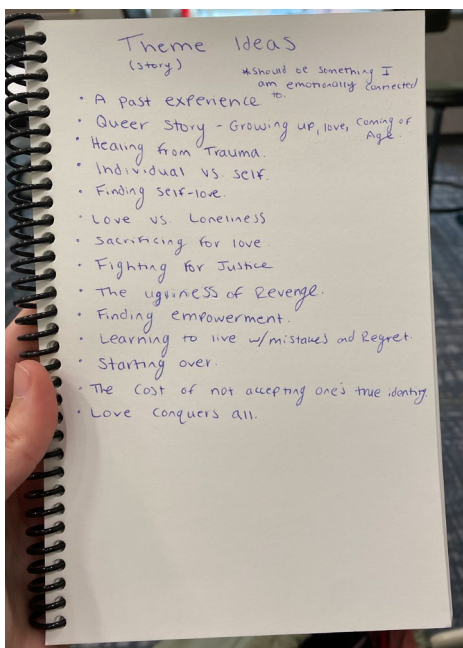 Theme Ideas
(Story)
*Should be something I
am emotionally connected
to.
• A past experience
• Queer Story - Growing up, love, Coming of
Age.
• Healing from Trauma.
• Individual vs. self.
• Finding self-love.
• Love vs. Loneliness
• Sacrificing for love
• Fighting for Justice
• The ugliness of Revenge.
• Finding empowerment.
• Learning to live w/mistakes and Regret.
• Starting over.
• The cost of not accepting one's true identity.
• Love conquers all.